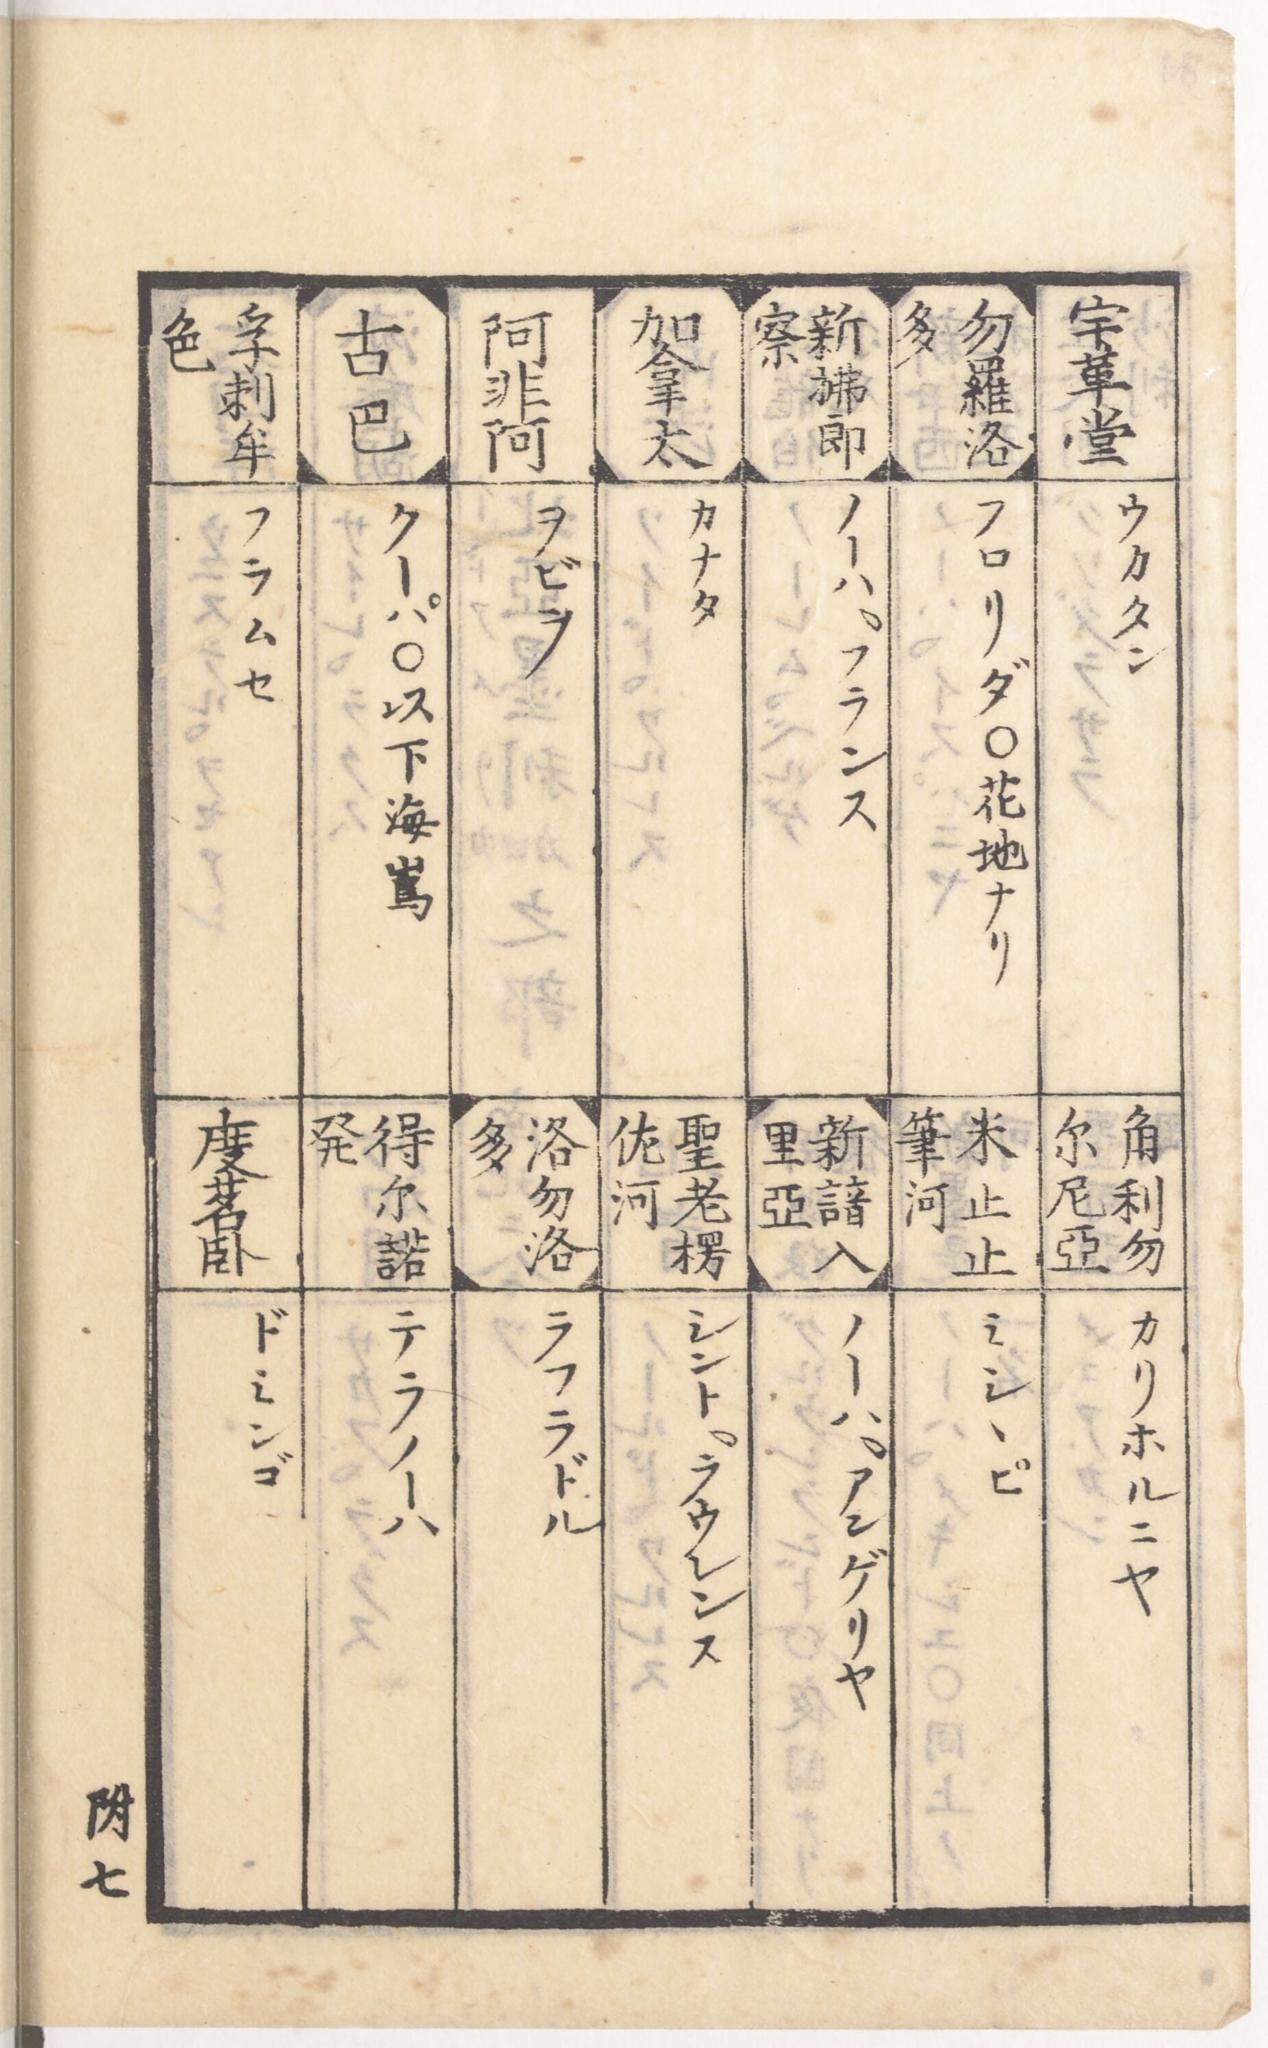 宇革堂
ウカタン
勿羅洛
多
フロリダ〇花地ナリ
新拂郎
察
ノーハ゜フランス
加拿太
カナタ
阿非阿
ヲビヲ
古巴
クーパ〇以下海嶌
孚刺牟
色
フラムセ
角利勿
尔尼亞
カリホルニヤ
米止止
筆河
ミシヽピ
新諳入
里亞
ノーハ゜アンゲリヤ
聖老楞
佐河
シント゜ラウレンス
洛勿洛
多
ラフラドル
得尔諾
発
テラノーハ
度茗卧
ドミンゴ
附七